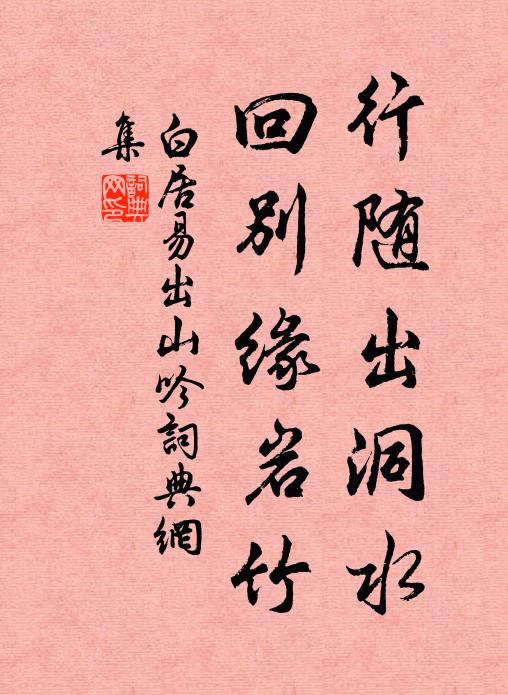 行随出洞水
回别缘岩竹
白居易出山吟詞典網
集
詞典网印